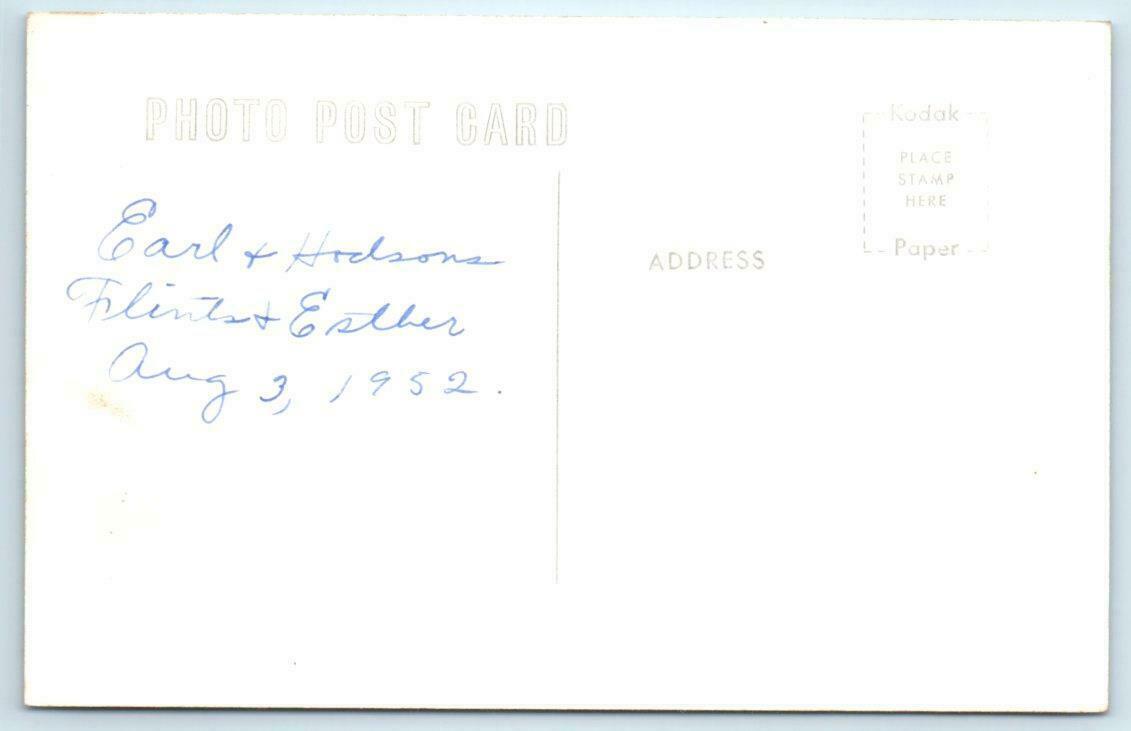 PHOTO POST CARD
Kodak
PLACE
STAMP
HERE
Paper
ADDRESS
Earl + Hodsons
Flints + Esther
Aug 3, 1952.